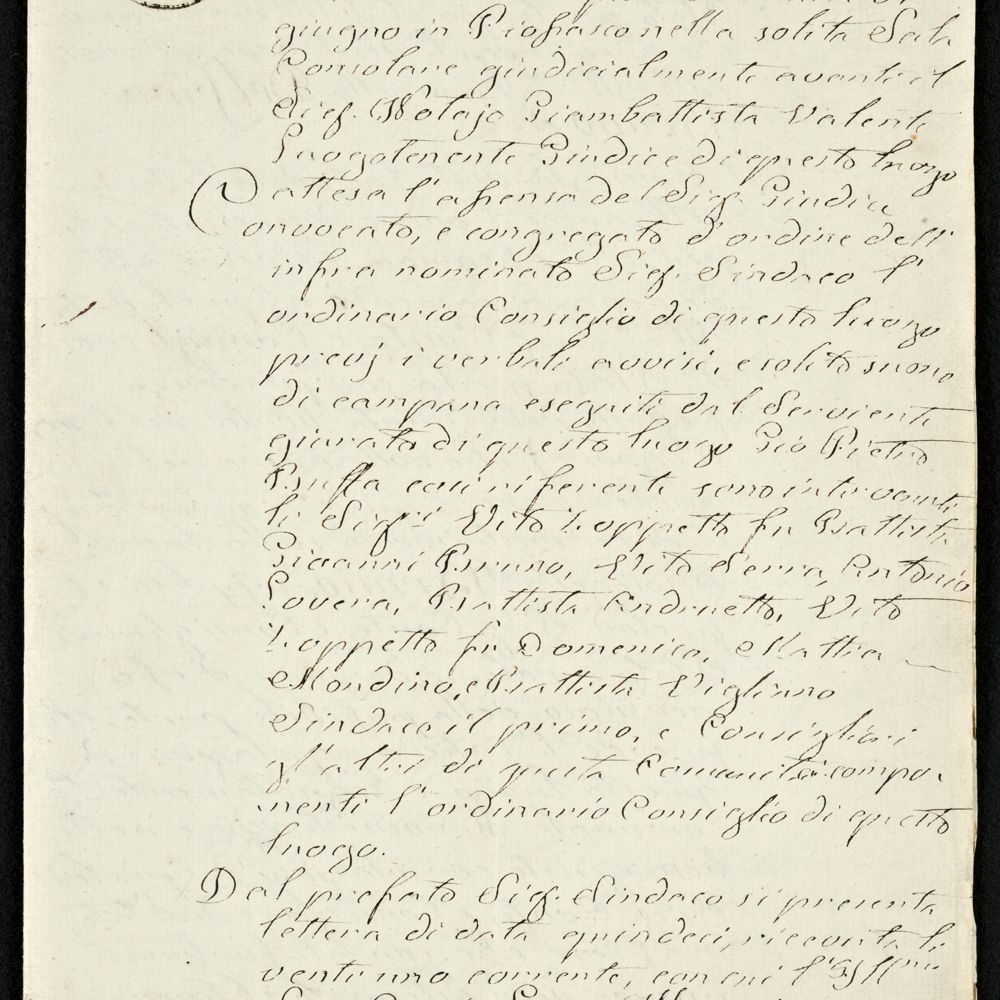 giugno in Piofrasco nella solita Sala
Consolare giudicialmente avanti il
Sig.r Notajo Giambattista Valente
Luogotenente Giudice di questo luogo
attesa l'assenza del Sig.r Giudice
Convocato, e congregato d'ordine dell'
infra nominato Sig.r Sindaco l'
ordinario Consiglio di questo luogo
previj i verbali avvisi, e solito suono
di campana eseguiti dal Serviente
giurato di questo luogo Gio Pietro
Buffa così riferente sono intervenuti
li Sig.ri Vito Toppetto fu Battista
Gioanni Bruno, Vito Serra, Antonio
Lovera, Battista Andruetto, Vito
Toppetto fu Domenico, Mattia
Mondino, e Battista Vigliano
Sindaco il primo, e Consiglieri
gl'altri di questa Comunità compo-
nenti l'ordinario Consiglio di questo
luogo.
Dal prefato Sig.r Sindaco si presenta
lettera di data quindeci, ricevuta li
venti uno corrente, con cui l'Ill.mo